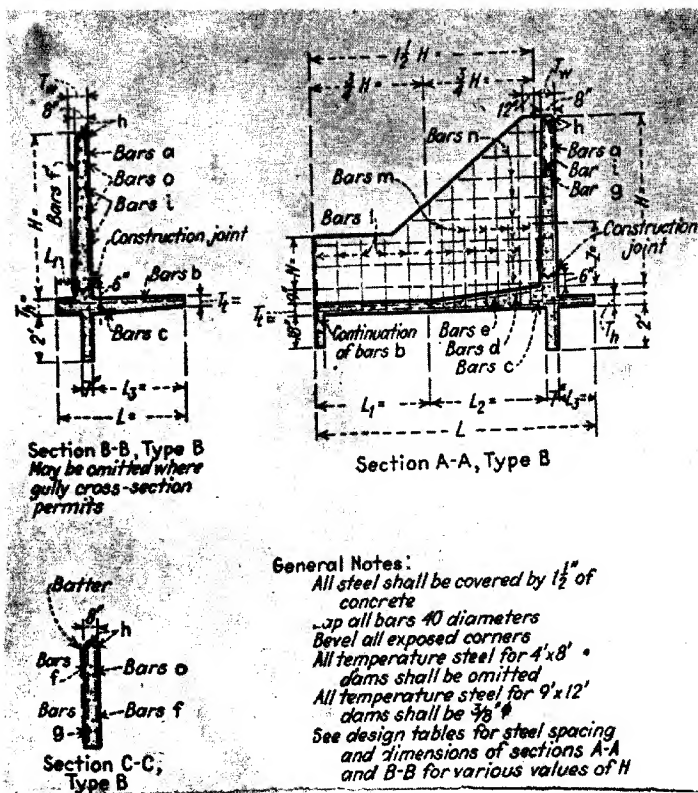 1½ H =
¾ H =
¾ H =
T_w
8"
h
Bars a
Bars o
Bars i
Bars f
H =
Construction joint
6"
Bars b
Bars c
2'
T_t =
L_3 =
L =
Section B-B, Type B
May be omitted where
gully cross-section
permits
12"
T_w
8"
h
Bars n
Bars a
Bar i
Bar g
Bars m
Bars l
H =
Construction
joint
6"
T_t =
T_h
2'
Continuation
of bars b
Bars e
Bars d
Bars c
L_1 =
L_2 =
L_3 =
L
Section A-A, Type B
Batter
8"
h
Bars
f
Bars o
Bars
g
Bars f
Section C-C,
Type B
General Notes:
All steel shall be covered by 1½" of
concrete
Lap all bars 40 diameters
Bevel all exposed corners
All temperature steel for 4'x8'
dams shall be omitted
All temperature steel for 9'x12'
dams shall be ⅜"ϕ
See design tables for steel spacing
and dimensions of sections A-A
and B-B for various values of H